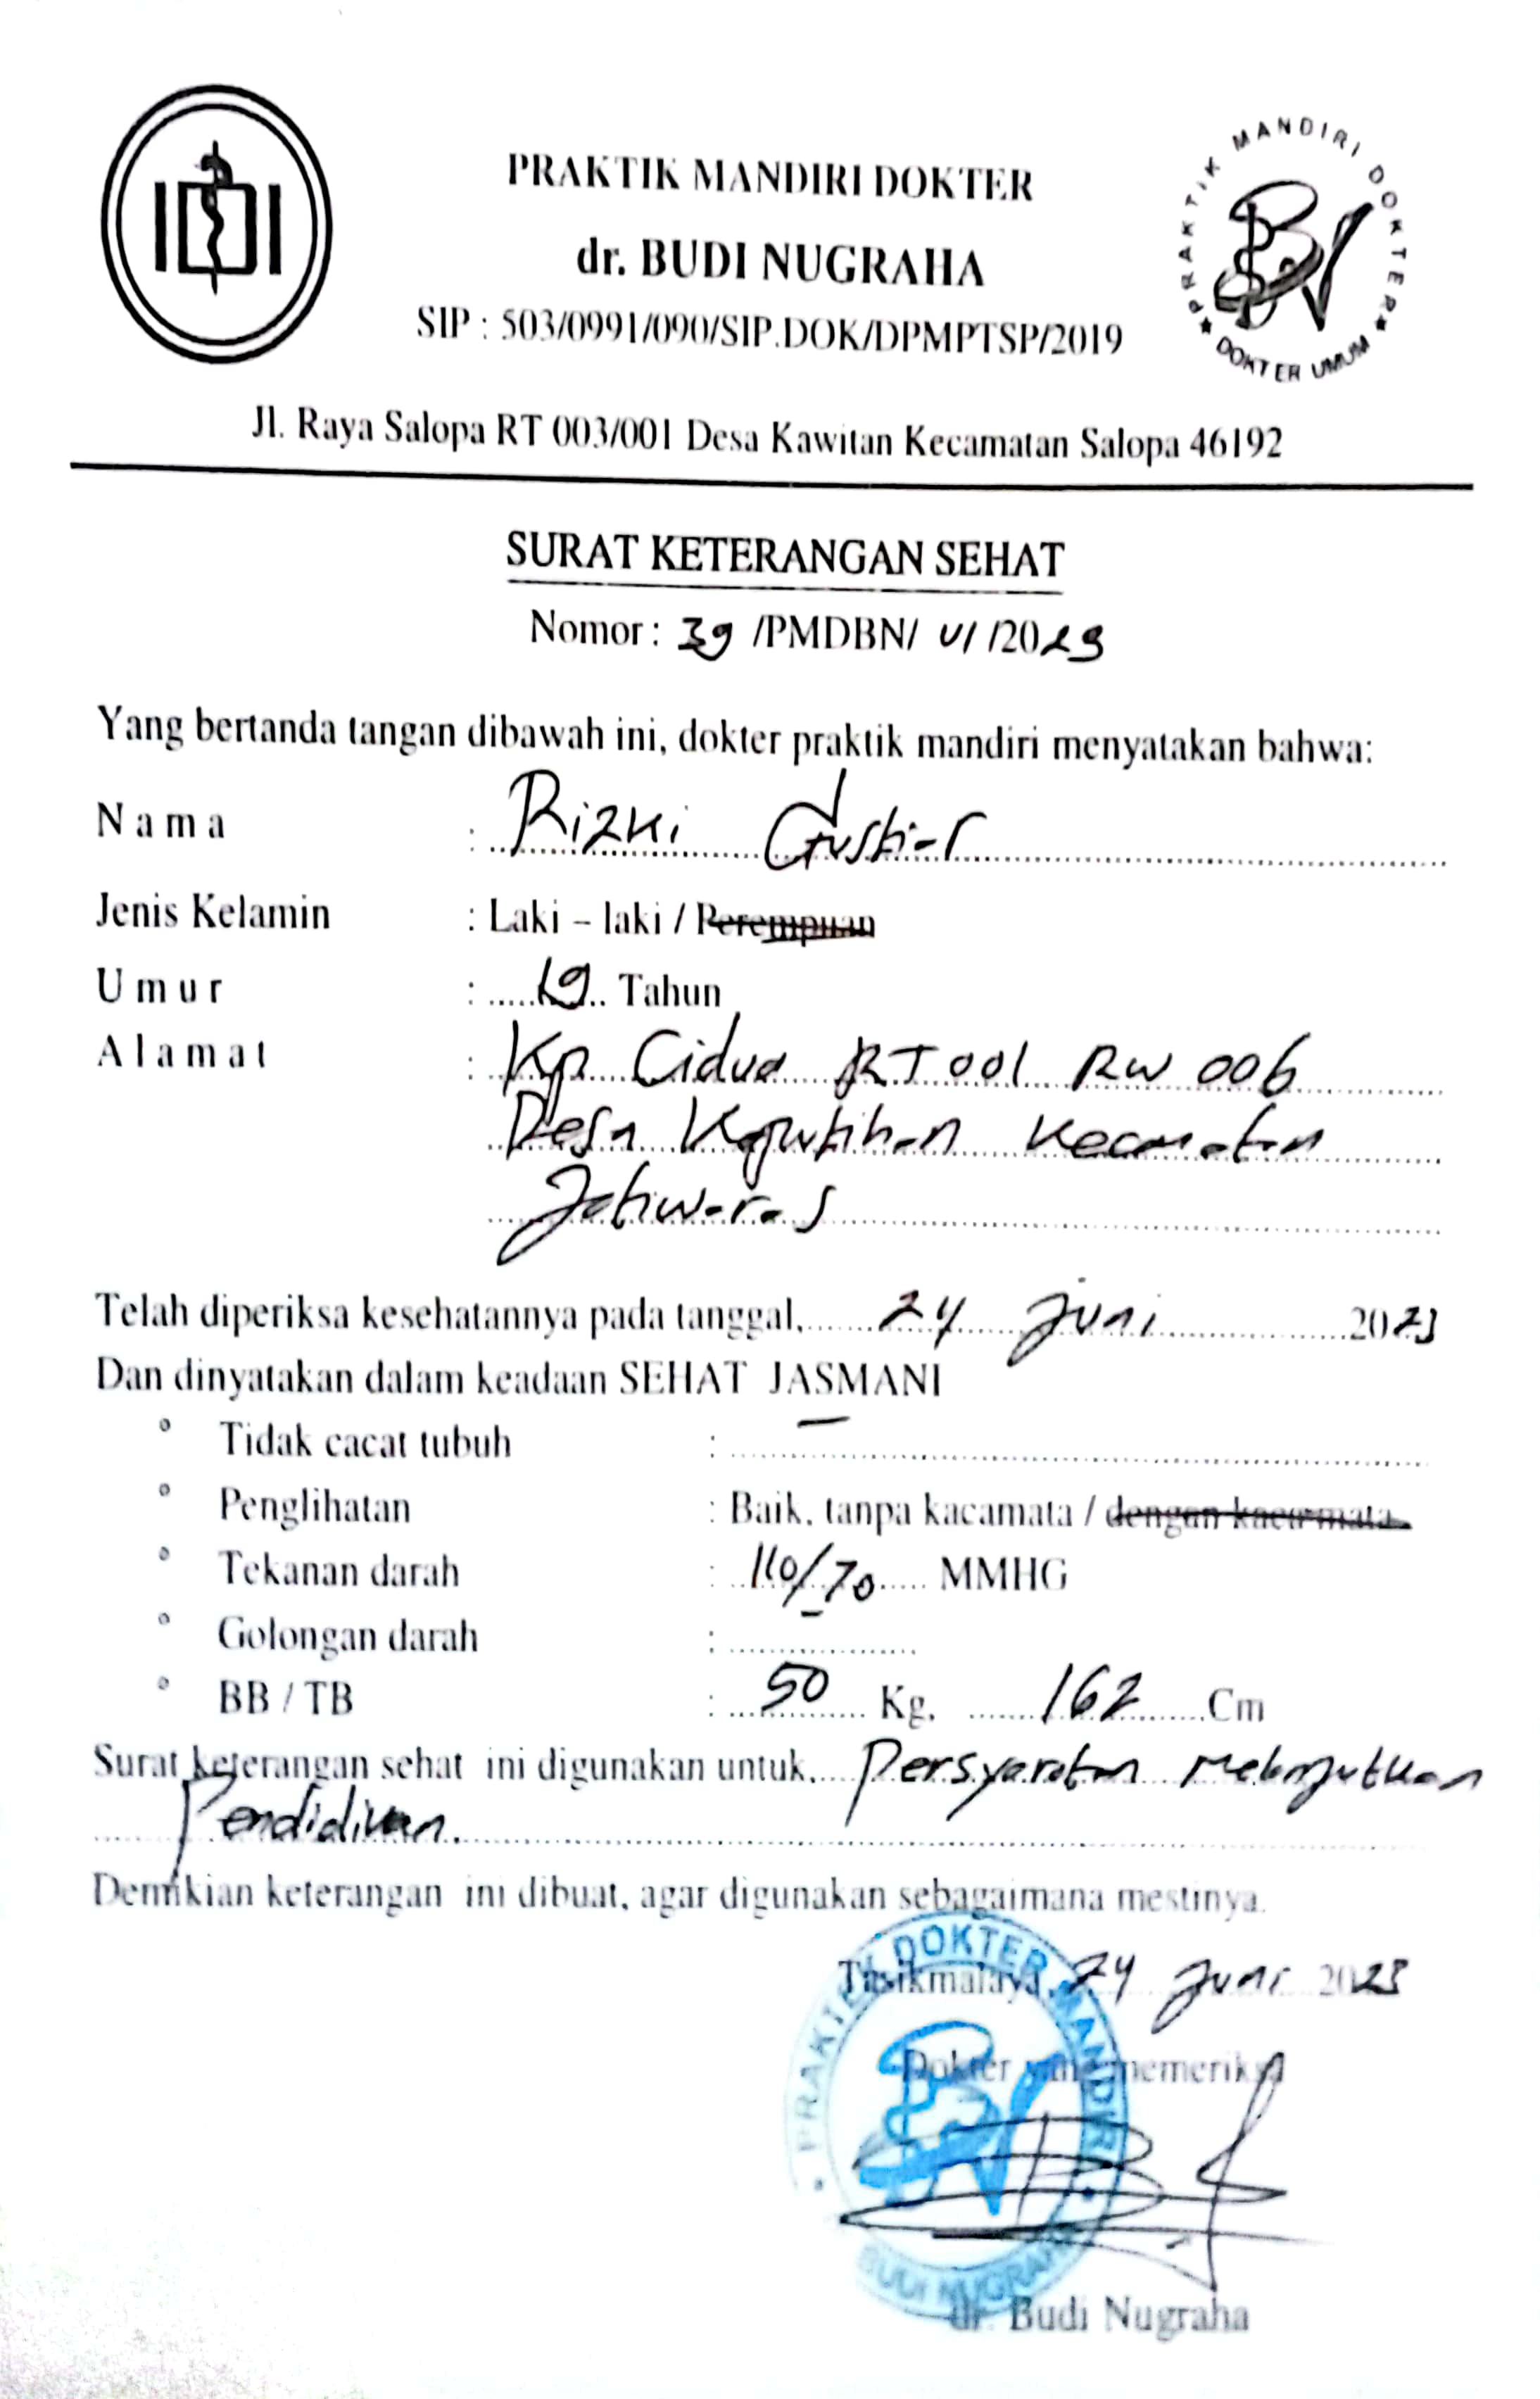 IDI
PRAKTIK MANDIRI DOKTER
dr. BUDI NUGRAHA
SIP : 503/0991/090/SIP.DOK/DPMPTSP/2019
PRAKTIK MANDIRI DOKTER
DOKTER UMUM
BN
Jl. Raya Salopa RT 003/001 Desa Kawitan Kecamatan Salopa 46192
SURAT KETERANGAN SEHAT
Nomor : 39 /PMDBN/ VI /2023
Yang bertanda tangan dibawah ini, dokter praktik mandiri menyatakan bahwa:
Nama : Rizki Gustiar
Jenis Kelamin : Laki – laki / Perempuan
Umur : 19 Tahun
Alamat : Kp Cidua RT 001 RW 006
Desa Kaputihan Kecamatan
Jatiwaras
Telah diperiksa kesehatannya pada tanggal, 24 Juni 2023
Dan dinyatakan dalam keadaan SEHAT JASMANI
° Tidak cacat tubuh : –
° Penglihatan : Baik, tanpa kacamata / dengan kaca mata
° Tekanan darah : 110/70 MMHG
° Golongan darah : –
° BB / TB : 50 Kg, 162 Cm
Surat keterangan sehat ini digunakan untuk, Persyaratan Melanjutkan
Pendidikan.
Demikian keterangan ini dibuat, agar digunakan sebagaimana mestinya.
Tasikmalaya, 24 Juni 2023
Dokter yang memeriksa
PRAKTEK DOKTER MANDIRI
BN
BUDI NUGRAHA
dr. Budi Nugraha